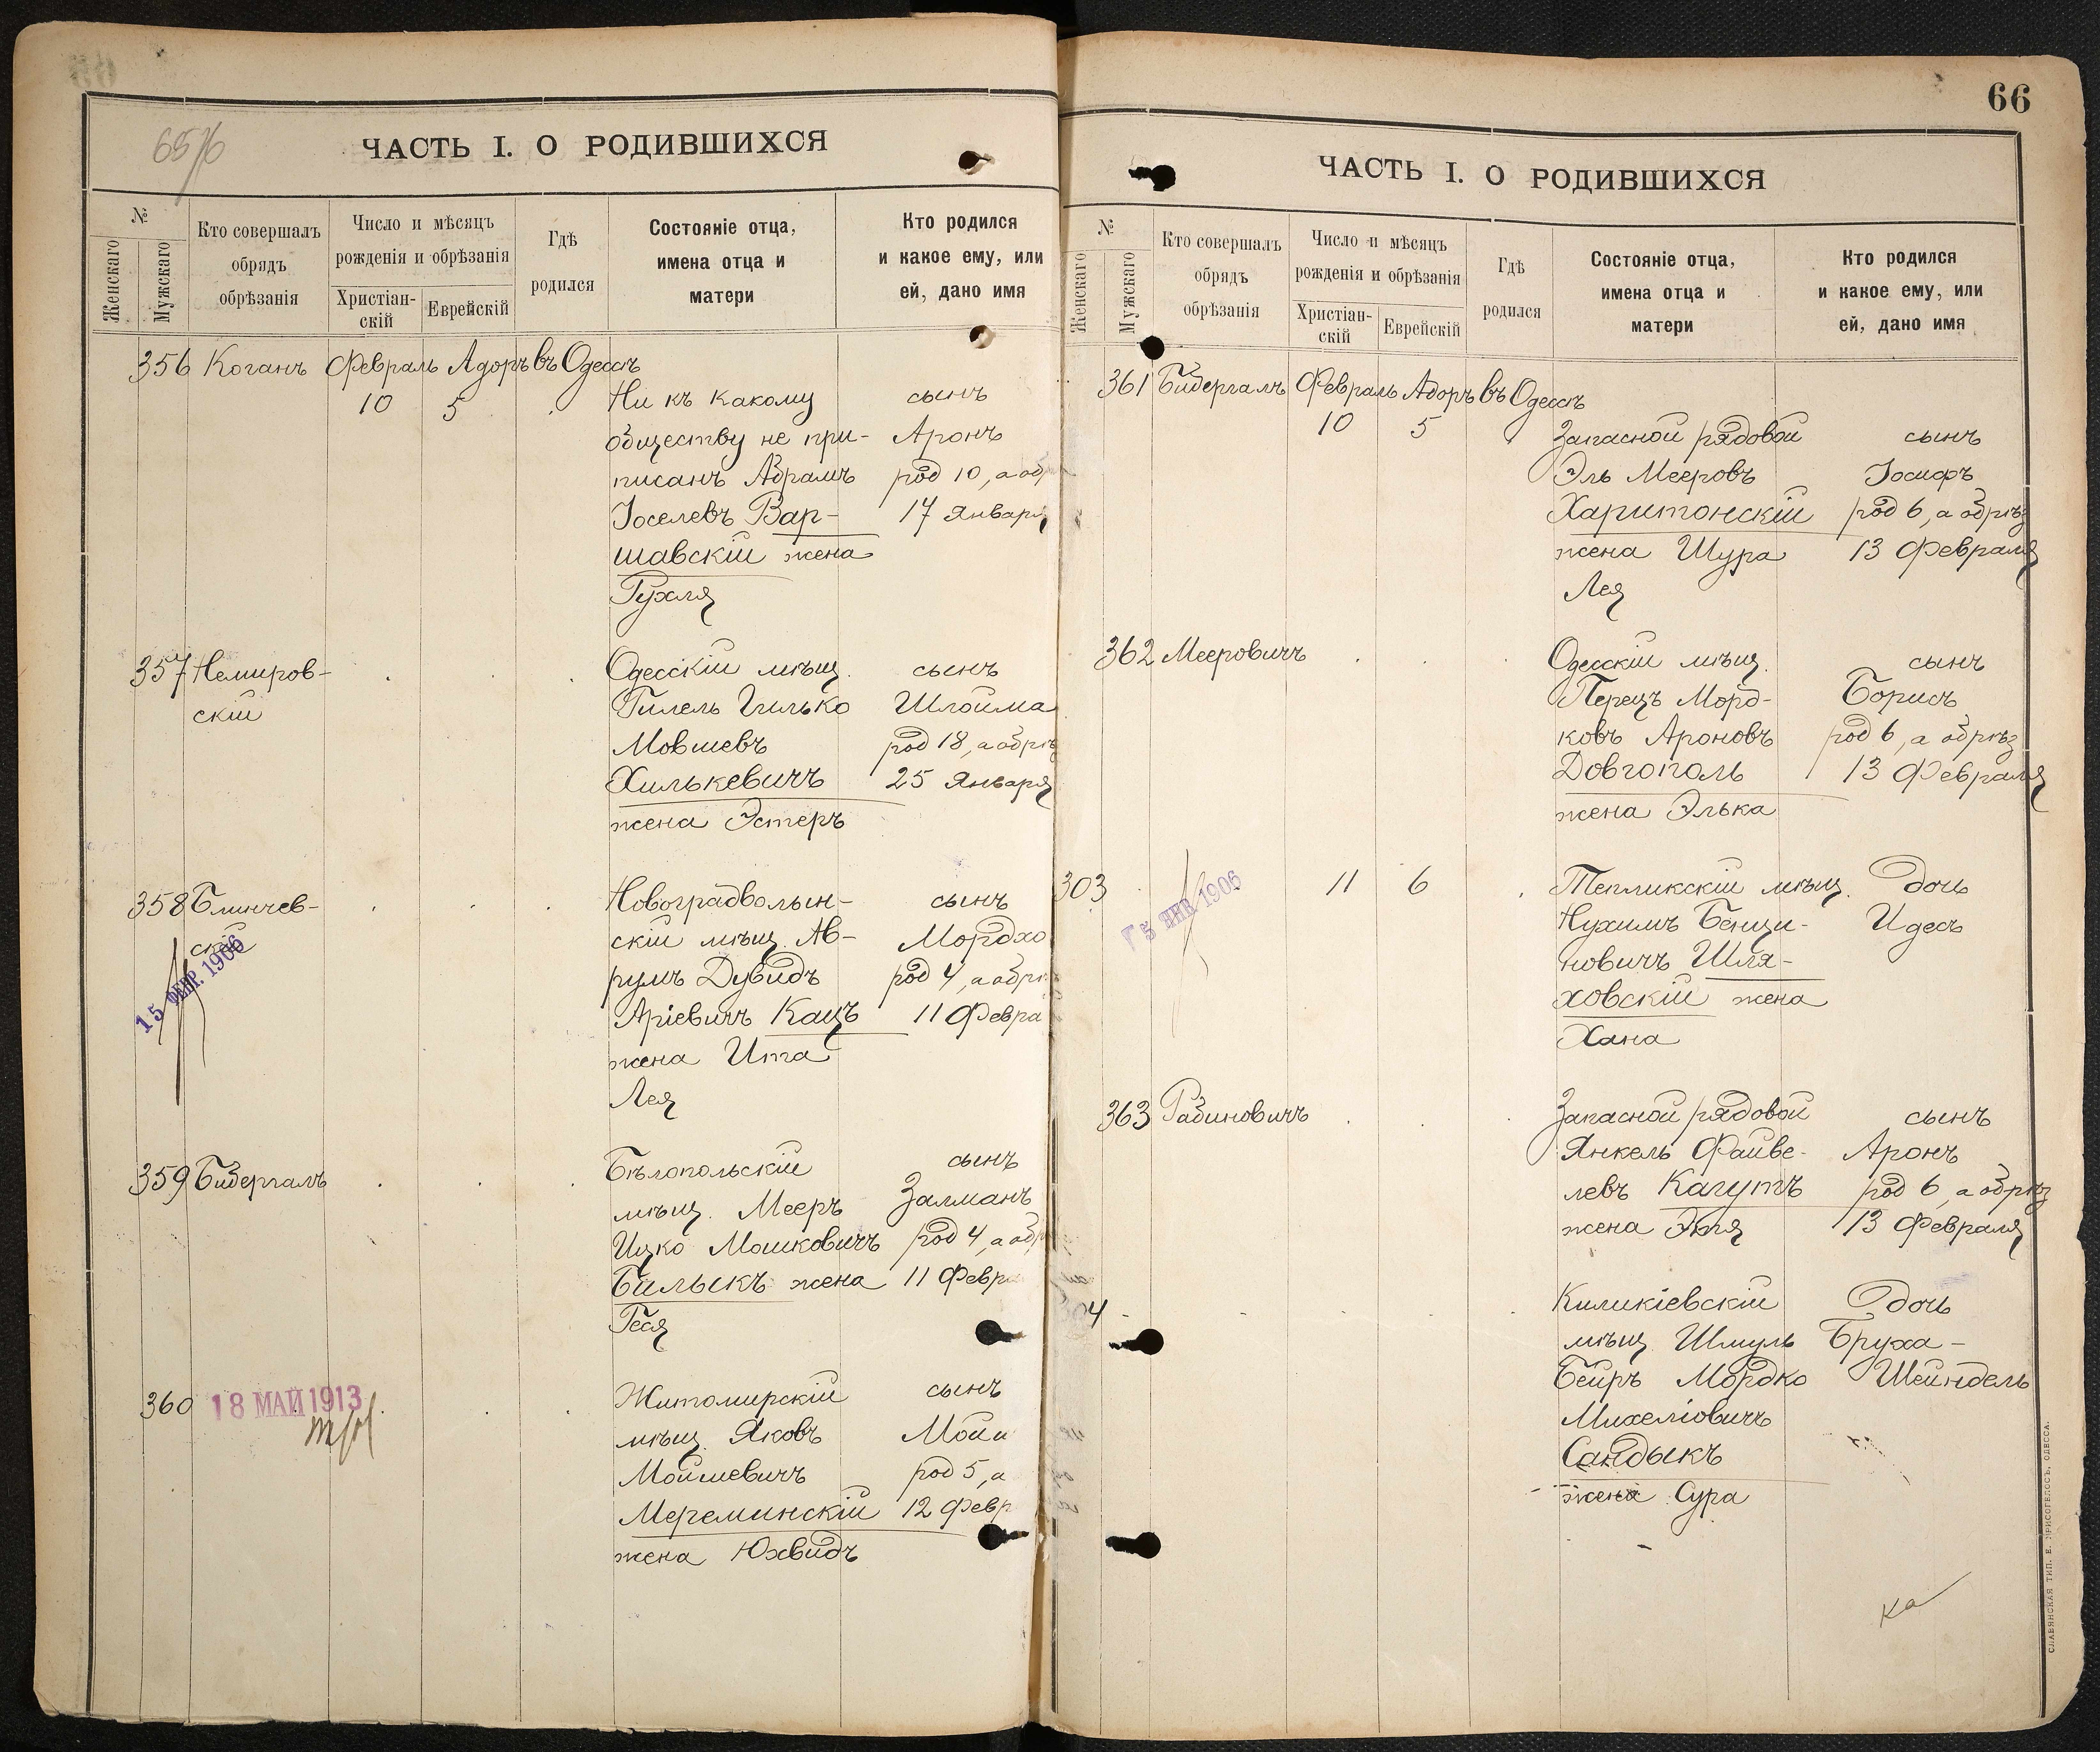 65/6
ЧАСТЬ I. О РОДИВШИХСЯ
№
Женскаго
Мужскаго
Кто совершалъ
обрядъ
обрѣзанія
Число и мѣсяцъ
рожденія и обрѣзанія
Христіан-
скій
Еврейскій
Гдѣ
родился
Состояніе отца,
имена отца и
матери
Кто родился
и какое ему, или
ей, дано имя
356 Коганъ Февраль Адоръ въ Одессѣ
10 5 Ни къ какому сынъ
обществу не при- Аронъ
писанъ Абрамъ род 10, а обр
Іоселевъ Вар- 17 Января
шавскій жена
Рухля
357 Немиров- Одесскій мѣщ. сынъ
скій Гилель Гилько Шлойма
Мовшевъ род 18, а обрѣз
Хилькевичъ 25 Января
жена Эстеръ
358 Блинчев- Новоградволын- сынъ
скій скій мѣщ. Ав- Мордхо
15 ФЕВР. 1906 румъ Дувидъ род 4, а обрѣ
Аріевичъ Кацъ 11 Февра
жена Ита
Лея
359 Бидергалъ Бѣлопольскій сынъ
мѣщ. Мееръ Залманъ
Ицко Мошковичъ род 4, а обр
Бильыкъ жена 11 Февра
Геся
360 18 МАЙ 1913 Житомирскій сынъ
мѣщ. Яковъ Мойш
Мойшевичъ род 5, а
Мереминскій 12 Февр
жена Юхвидъ
66
ЧАСТЬ I. О РОДИВШИХСЯ
№
Женскаго
Мужскаго
Кто совершалъ
обрядъ
обрѣзанія
Число и мѣсяцъ
рожденія и обрѣзанія
Христіан-
скій
Еврейскій
Гдѣ
родился
Состояніе отца,
имена отца и
матери
Кто родился
и какое ему, или
ей, дано имя
361 Бидергалъ Февраль Адоръ въ Одессѣ
10 5 Запасной рядовой сынъ
Эль Мееровъ Іосифъ
Харитонскій род 6, а обрѣз
жена Шура 13 Февраля
Лея
362 Мееровичъ Одесскій мѣщ. сынъ
Перецъ Морд- Борисъ
ковъ Ароновъ род 6, а обрѣз
Довгополь 13 Февраля
жена Элька
303 5 ЯНВ. 1906 11 6 Тепликскій мѣщ. дочь
Нухимъ Бенци- Идесъ
новичъ Шля-
ховскій жена
Хана
363 Рабиновичъ Запасной рядовой сынъ
Янкель Файве- Аронъ
левъ Кагутъ род 6, а обрѣз
жена Этя 13 Февраля
4 Киликіевскій дочь
мѣщ. Шмуль Бруха-
Бейръ Мордко Шейндель
Михеліовичъ
Сандыкъ
жена Сура
ка
СЛАВЯНСКАЯ ТИП. Е. ХРИСОГЕЛОСЪ, ОДЕССА.